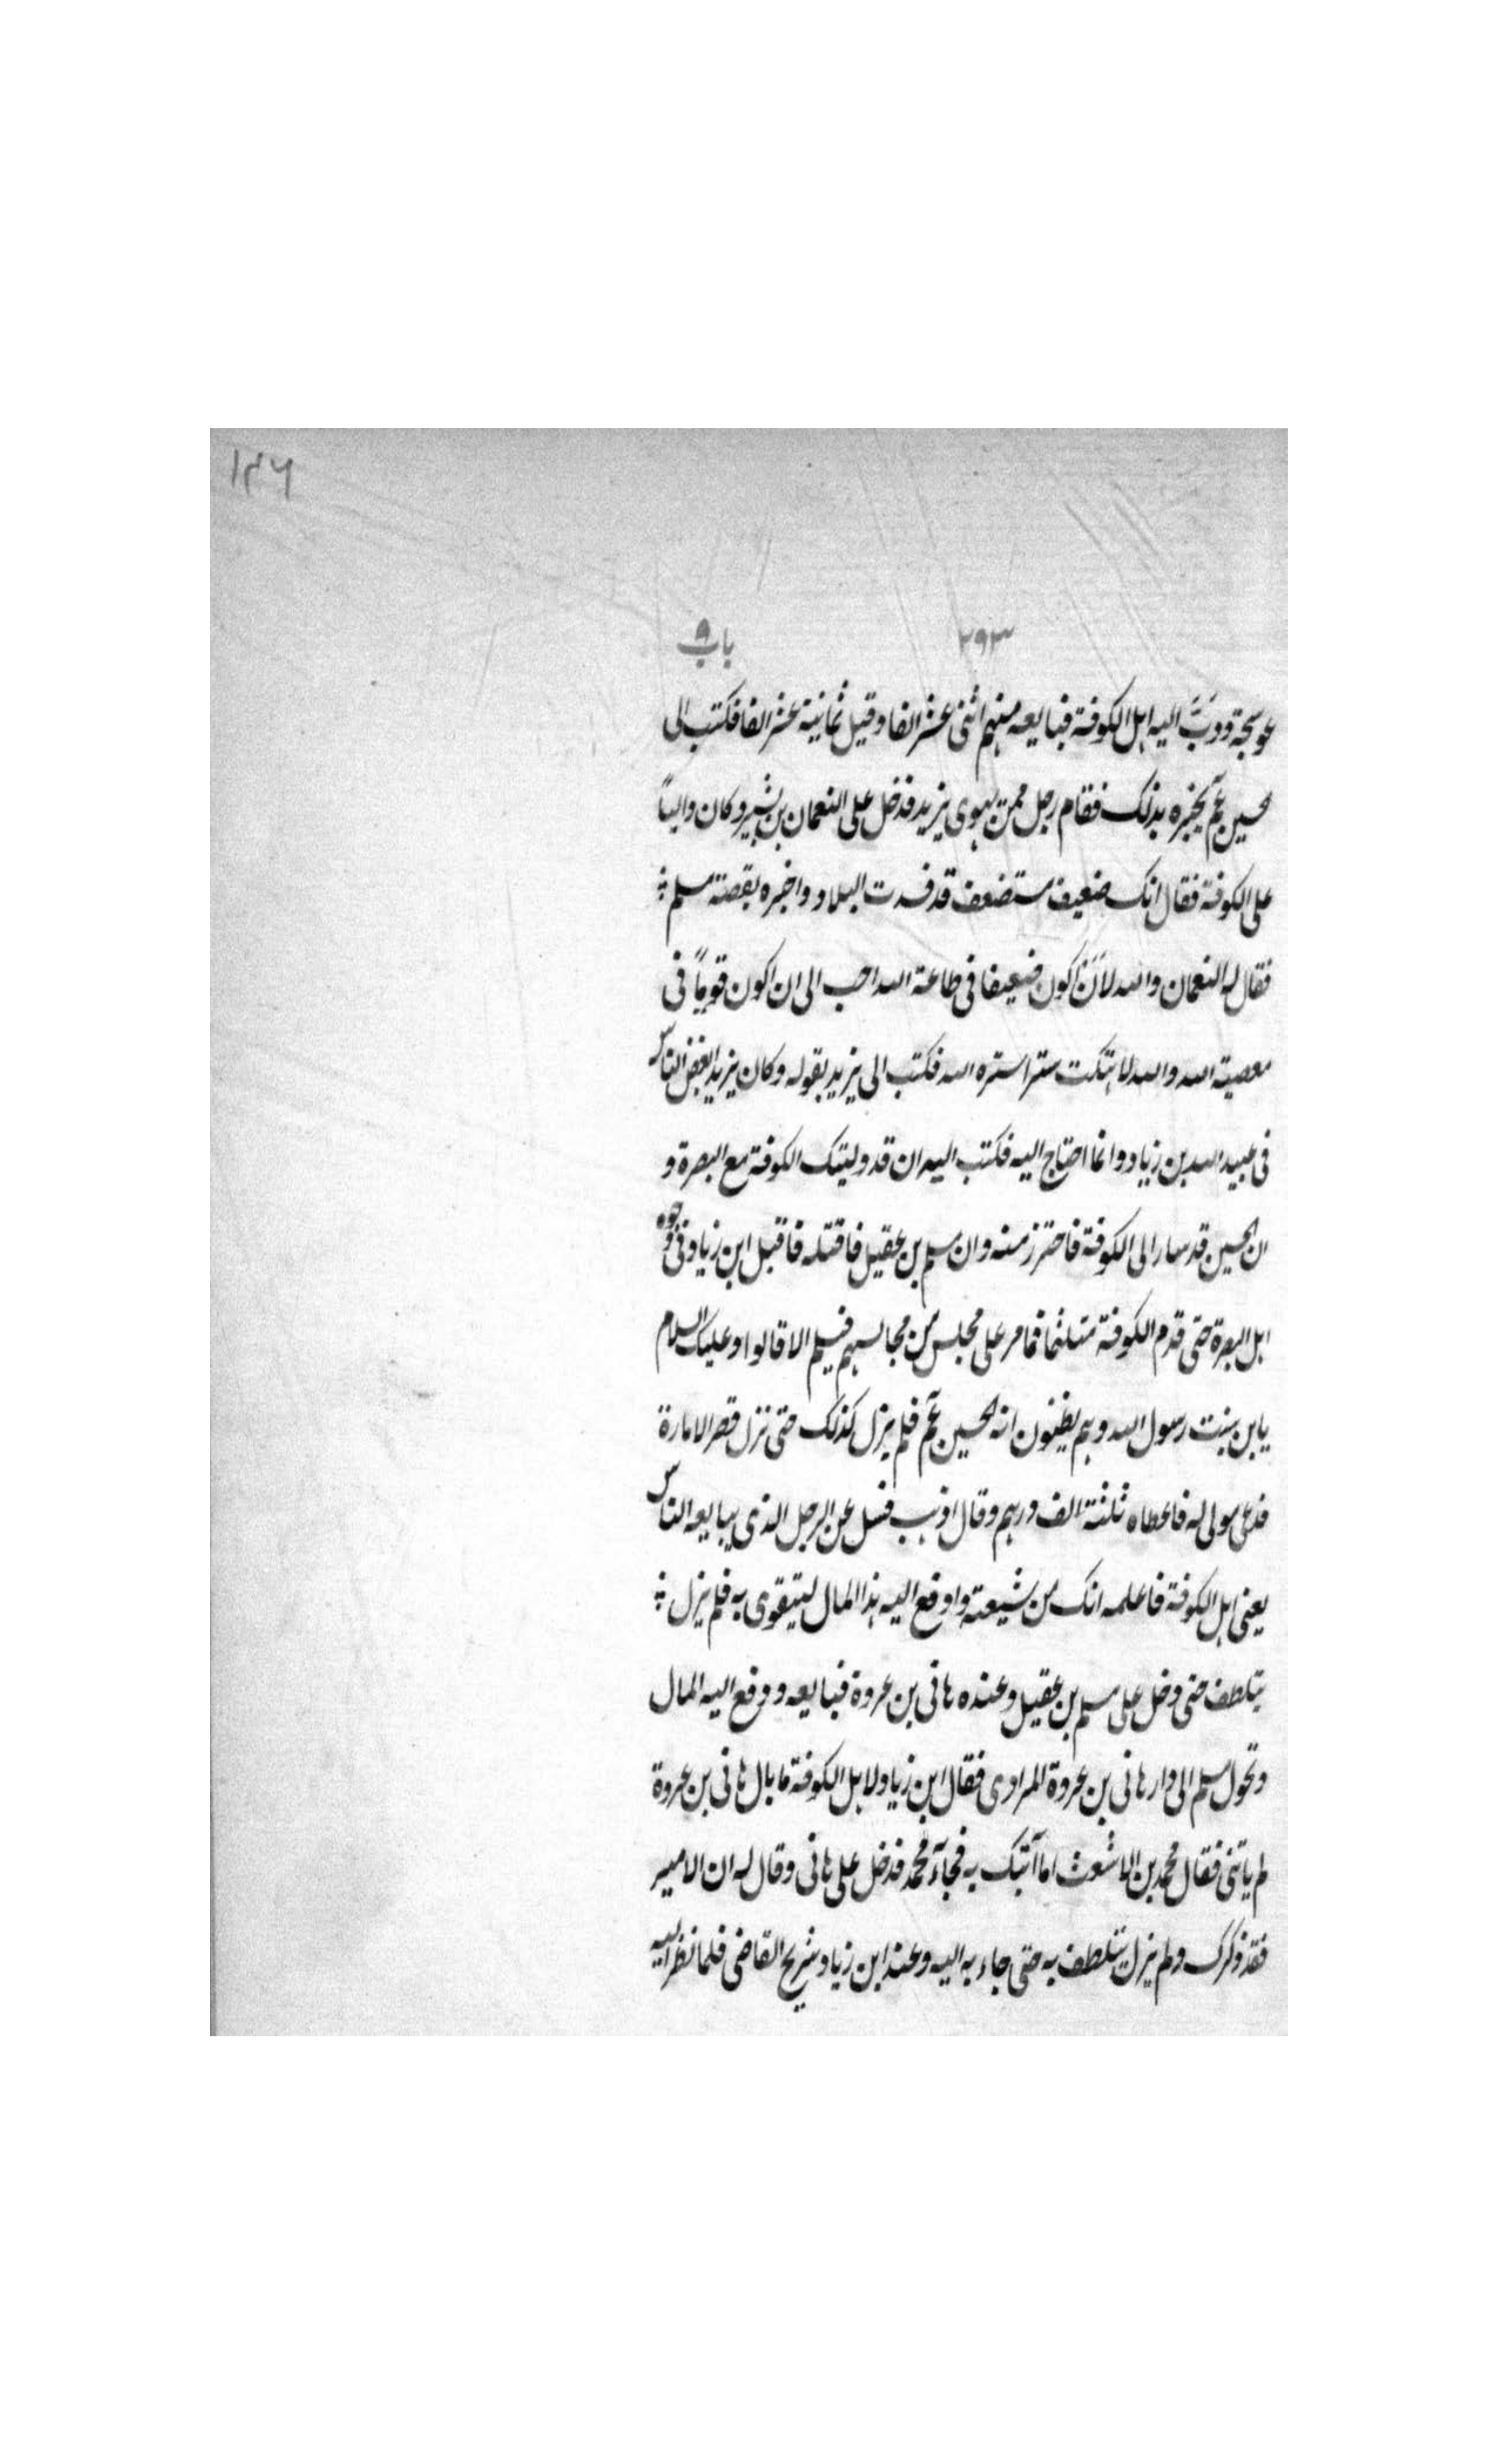 ١٤٦
٢٩٣ باب ٩
عوسجة ودَبَّ اليه اهل الكوفة فبايعه منهم اثنى عشر الفا وقيل ثمانية عشر الفا فكتب الى
الحسين عم يخبره بذلك فقام رجل ممن يهوى يزيد فدخل على النعمان بن بشير وكان والياً
على الكوفة فقال انك ضعيف مستضعف قد فسدت البلاد واخبره بقصة مسلم
فقال له النعمان والله لَاَنْ اكون ضعيفا فى طاعة الله احب الى ان اكون قوياً فى
معصية الله والله لا هتكت سترا ستره الله فكتب الى يزيد بقوله وكان يزيد ابغض الناس
فى عبيد الله بن زياد وانما احتاج اليه فكتب اليه ان قد وليتك الكوفة مع البصرة و
ان الحسين قد سار الى الكوفة فاحترز منه وان مسلم بن عقيل فاقتله فاقبل ابن زياد فى وجوه
اهل البصرة حتى قدم الكوفة متلثما فما مر على مجلس من مجالسهم فيسلم الا قالوا وعليك السلام
يا بن بنت رسول الله وهم يظنون انه الحسين عم فلم يزل كذلك حتى نزل قصر الامارة
فدعى مولى له فاعطاه ثلثة الف درهم وقال اذهب فسل عن الرجل الذى يبايعه الناس
يعنى اهل الكوفة فاعلمه انك من شيعته وادفع اليه هذا المال ليتقوى به فلم يزل
يتلطف حتى دخل على مسلم بن عقيل وعنده هانى بن عروة فبايعه ودفع اليه المال
وتحول مسلم الى دار هانى بن عروة المرادى فقال ابن زياد لاهل الكوفة ما بال هانى بن عروة
لم ياتنى فقال محمد بن الاشعث اما آتيك به فجآء محمد فدخل على هانى وقال له ان الامير
فقد ذكرك ولم يزل يتلطف به حتى جاء به اليه وعند ابن زياد شريح القاضى فلما نظر اليه